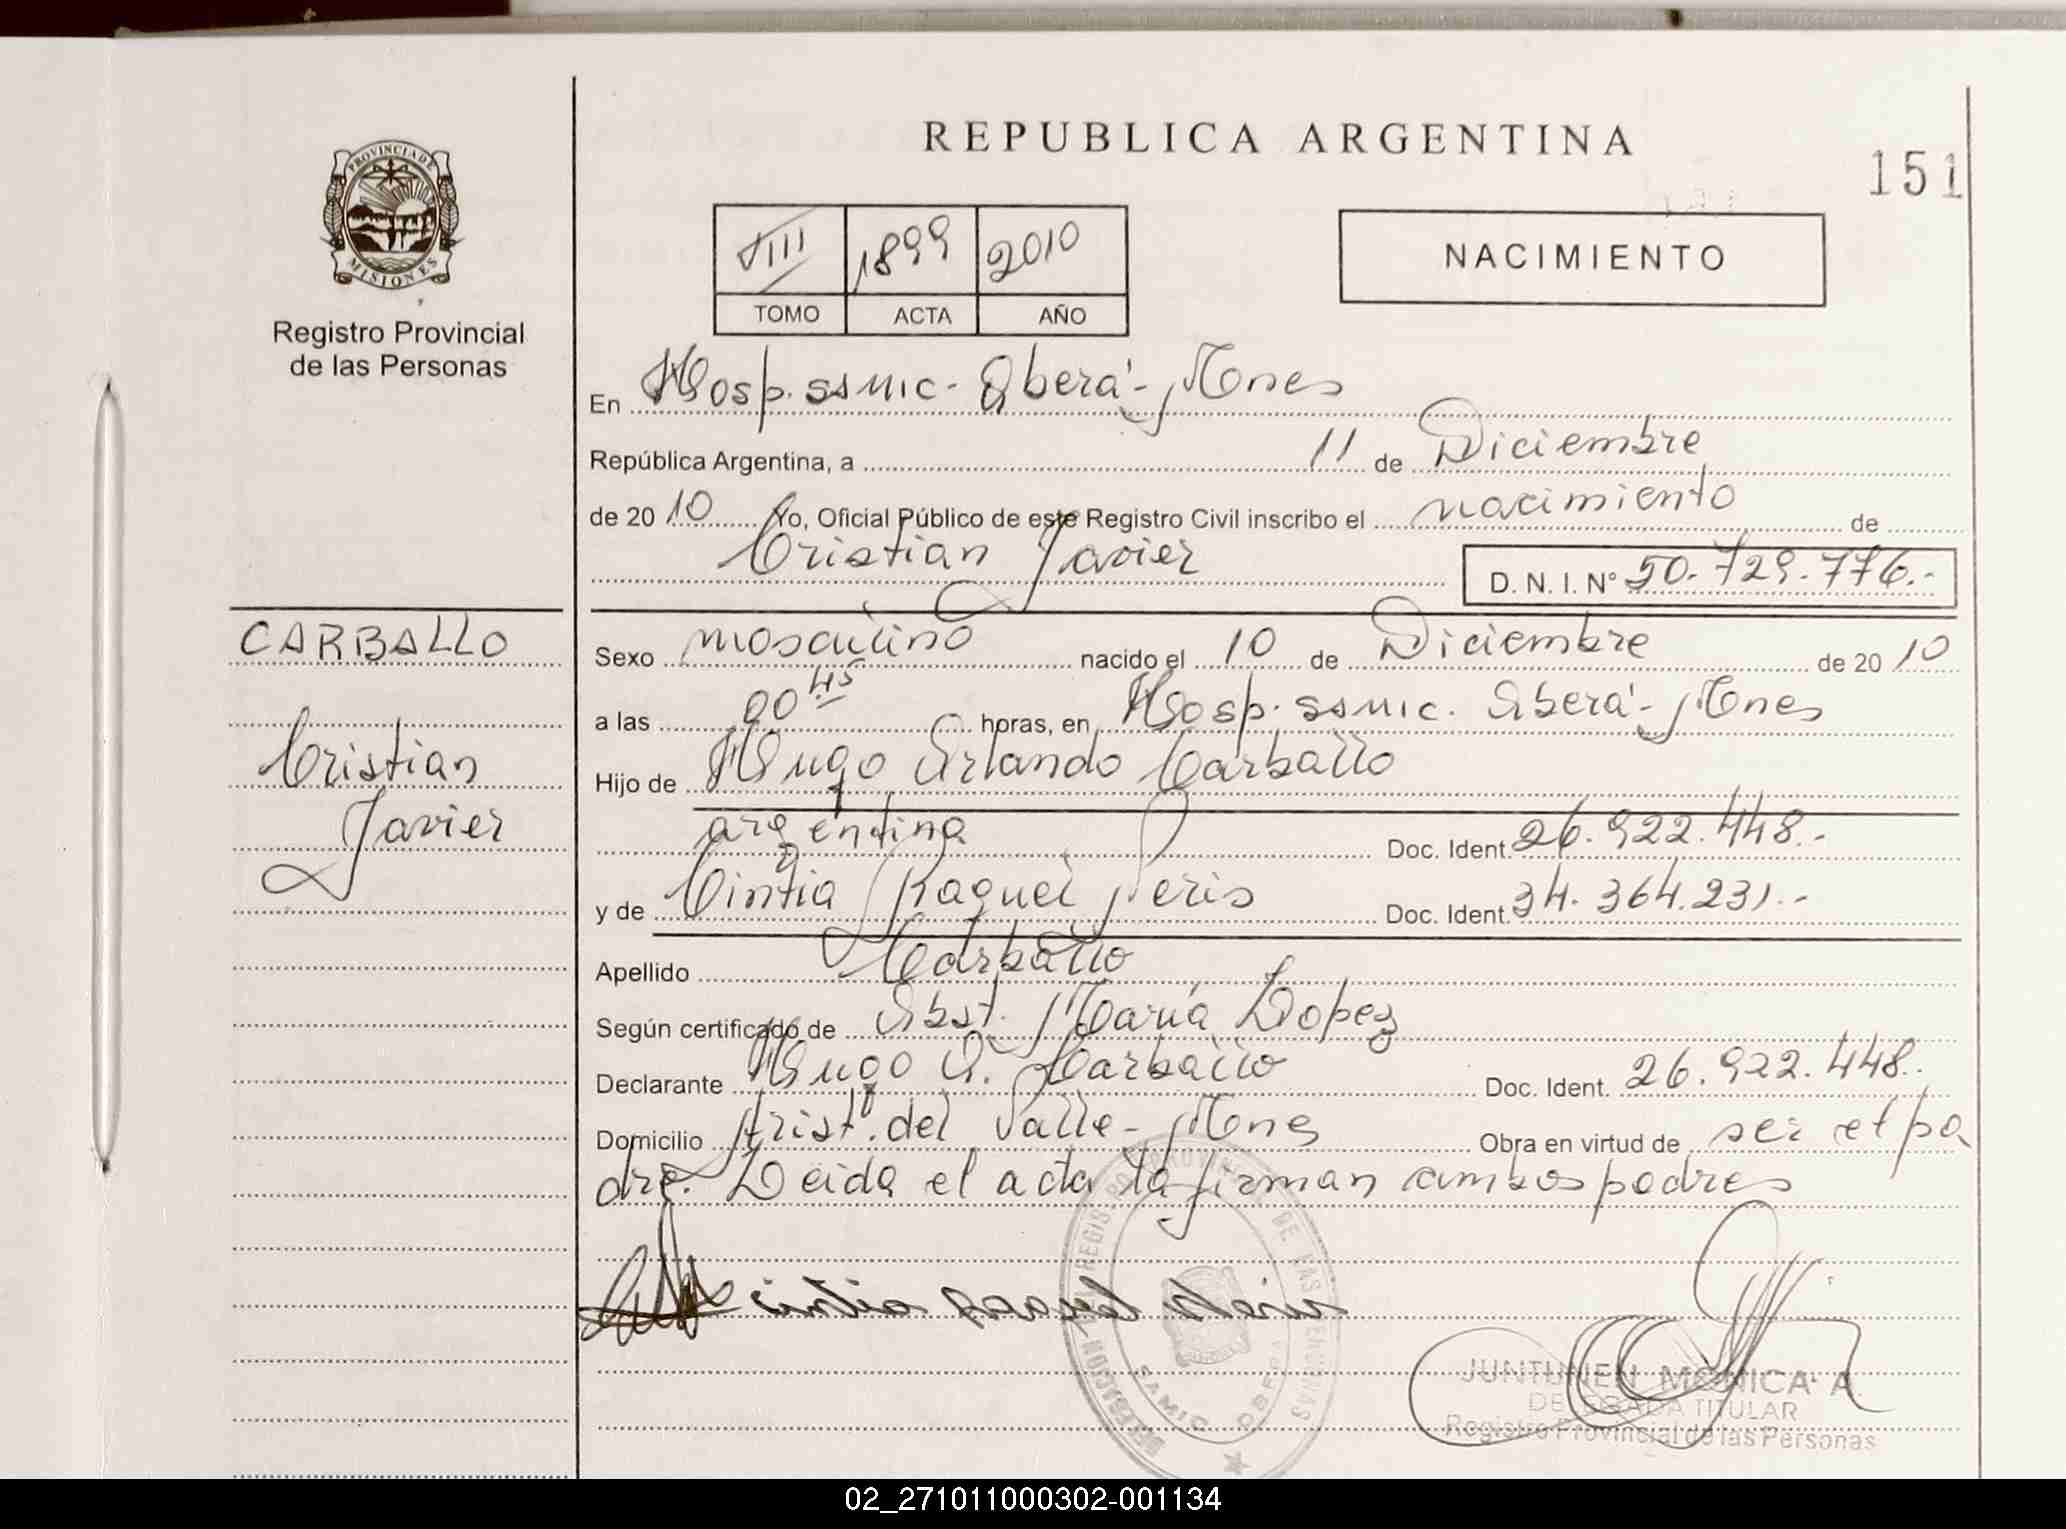 REPUBLICA ARGENTINA
151
PROVINCIA DE
MISIONES
Registro Provincial
de las Personas
VIII 1899 2010
TOMO ACTA AÑO
NACIMIENTO
En Hosp. SAMIC - Oberá - Mnes
República Argentina, a 11 de Diciembre
de 2010 Yo, Oficial Público de este Registro Civil inscribo el nacimiento de
Cristian Javier D. N. I. Nº 50.729.776.-
CARBALLO
Cristian
Javier
Sexo masculino nacido el 10 de Diciembre de 2010
a las 00 45 horas, en Hosp. SAMIC. Oberá - Mnes
Hijo de Hugo Orlando Carballo
argentina Doc. Ident. 26.922.448.-
y de Cintia Raquel Peris Doc. Ident. 34.364.231.-
Apellido Carballo
Según certificado de Obst. María Lopez
Declarante Hugo O. Carballo Doc. Ident. 26.922.448.
Domicilio Arist. del Valle - Mnes Obra en virtud de ser el pa
dre. Leida el acta la firman ambos padres
cintia Raquel
SAMIC OBERA
JUNTUNEN MONICA A.
DELEGADA TITULAR
Registro Provincial de las Personas
02_271011000302-001134